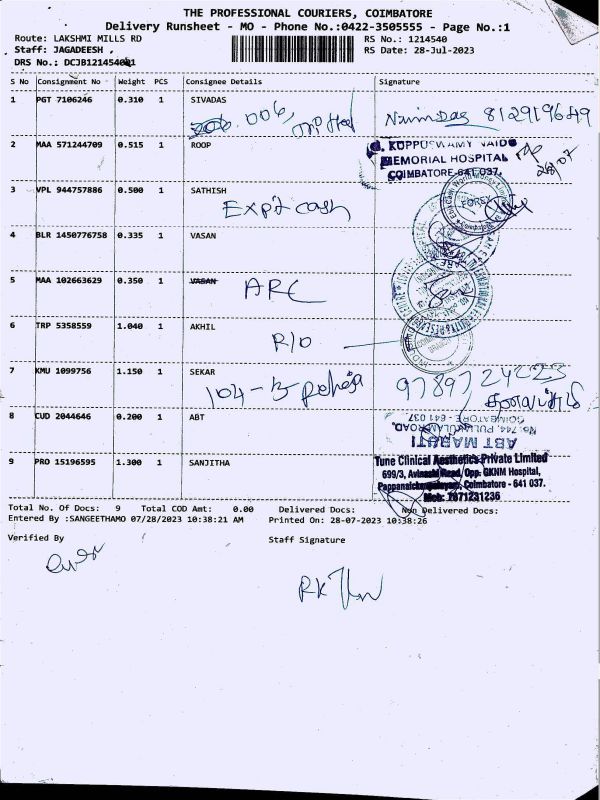 THE PROFESSIONAL COURIERS, COIMBATORE
Delivery Runsheet - MO - Phone No.:0422-3505555 - Page No.:1
Route: LAKSHMI MILLS RD RS No.: 1214540
Staff: JAGADEESH , RS Date: 28-Jul-2023
DRS No.: DCJB121454001
S No Consignment No Weight PCS Consignee Details Signature
1 PGT 7106246 0.310 1 SIVADAS
006, 812919649
2 MAA 571244709 0.515 1 ROOP
G. KUPPUSWAMY NAIDU
MEMORIAL HOSPITAL
COIMBATORE-641 037.
28/07
3 VPL 944757886 0.500 1 SATHISH
FOREX
4 BLR 1450776758 0.335 1 VASAN
5 MAA 102663629 0.350 1 VASAN
ARC
6 TRP 5358559 1.040 1 AKHIL
R/O
7 KMU 1099756 1.150 1 SEKAR
104-B raheja 9789724223
8 CUD 2044646 0.200 1 ABT
ABT MARUTI
No: 744, PULIAKULAM ROAD,
COIMBATORE - 641 037.
9 PRO 15196595 1.300 1 SANJITHA
Tune Clinical Aesthetics Private Limited
699/3, Avinashi Road, Opp. GKNM Hospital,
Pappanaickenpalayam, Coimbatore - 641 037.
Mob: 7871231236
Total No. Of Docs: 9 Total COD Amt: 0.00 Delivered Docs: Non Delivered Docs:
Entered By :SANGEETHAMO 07/28/2023 10:38:21 AM Printed On: 28-07-2023 10:38:26
Verified By Staff Signature